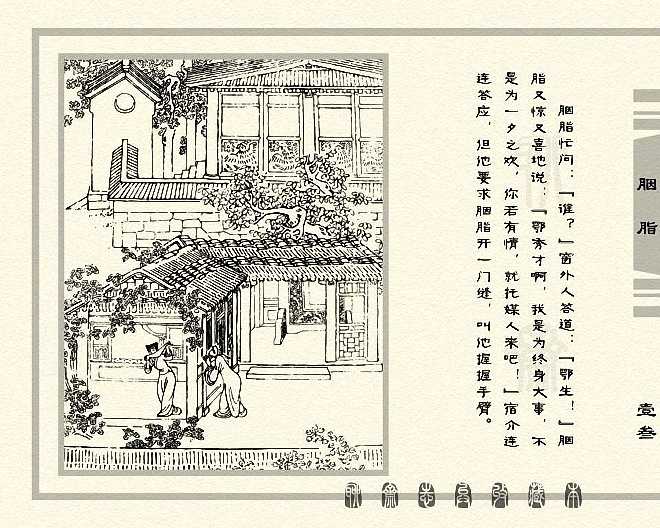 胭脂
壹叁
胭脂忙问：「谁？」窗外人答道：「鄂生！」胭
脂又惊又喜地说：「鄂秀才啊，我是为终身大事，不
是为一夕之欢，你若有情，就托媒人来吧！」宿介连
连答应，但他要求胭脂开一门缝，叫他握握手臂。
聊齋志異收藏本